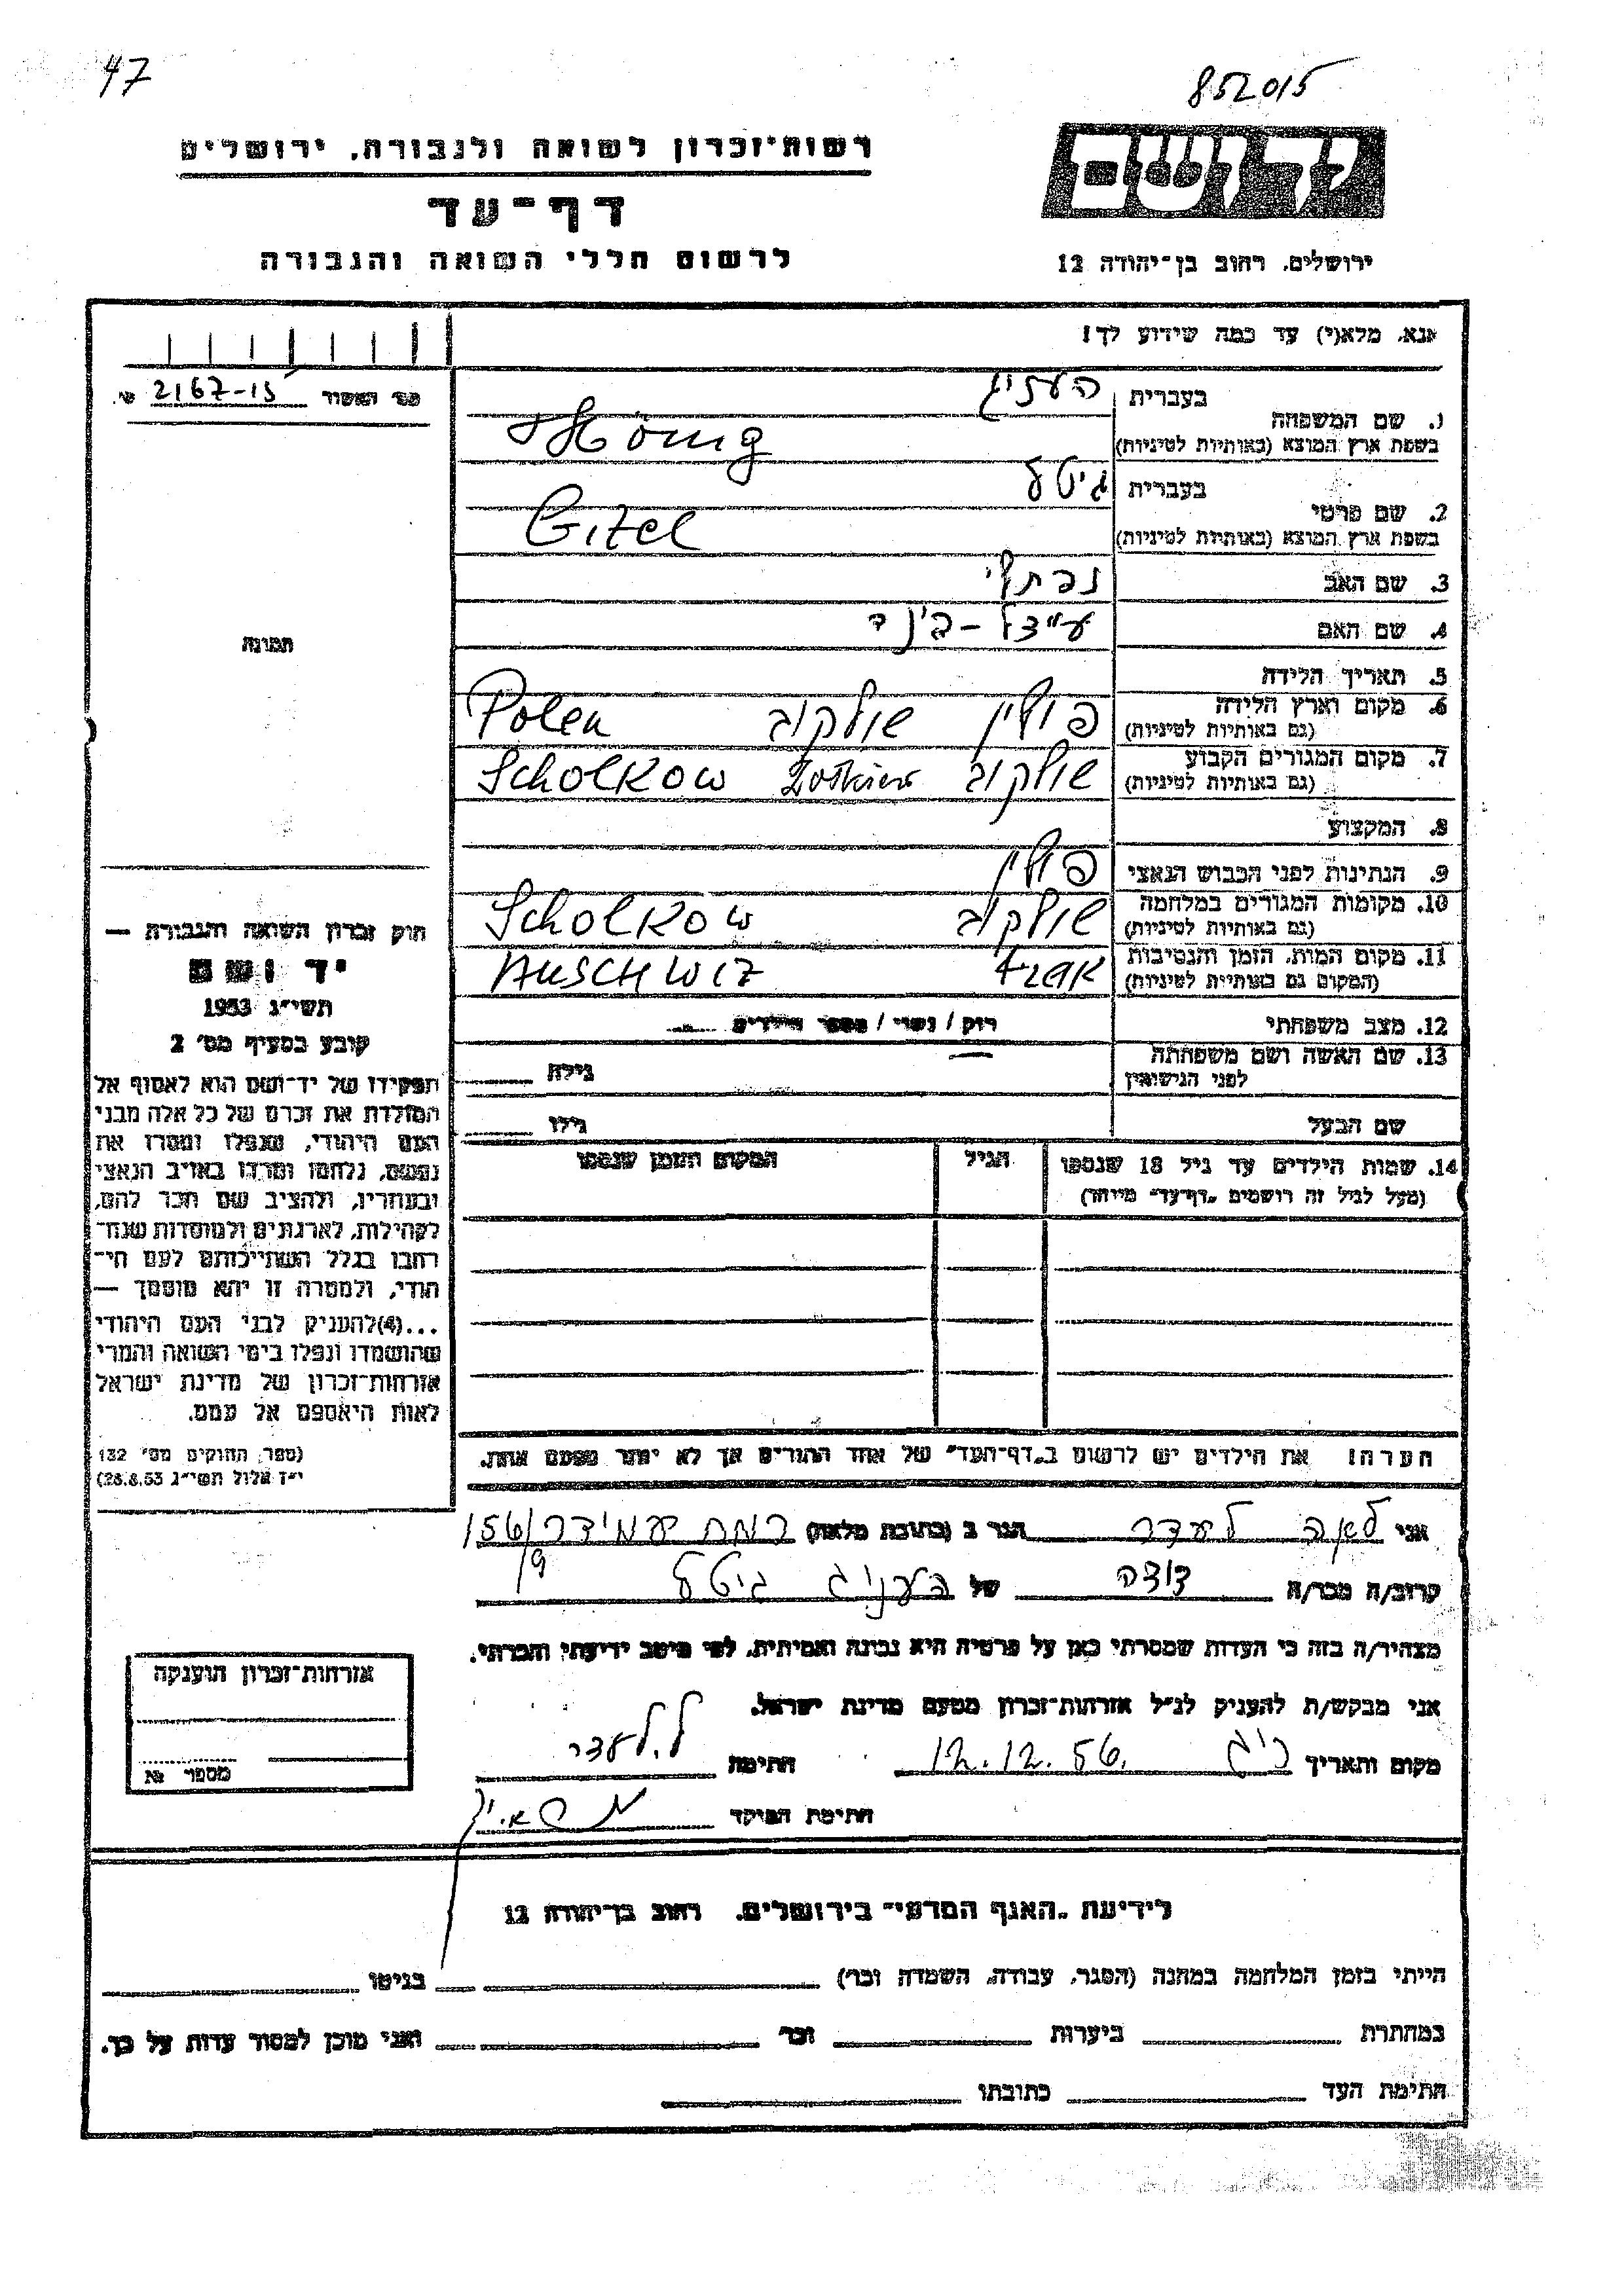 47
852015
רשות־זכרון לשואה ולגבורה, ירושלים
דף־עד
לרשום חללי השואה והגבורה
יד ושם
ירושלים, רחוב בן־יהודה 12
אנא, מלא(י) עד כמה שידוע לך!
2167-15
1. שם המשפחה
בעברית
העניג
בשפת ארץ המוצא (באותיות לטיניות)
Hönig
2. שם פרטי
בעברית
גיטל
בשפת ארץ המוצא (באותיות לטיניות)
Gitel
3. שם האב
נפתלי
4. שם האם
5. תאריך הלידה
6. מקום וארץ הלידה
(גם באותיות לטיניות)
פולין שולקוב Polen
7. מקום המגורים הקבוע
(גם באותיות לטיניות)
שולקוב Scholkow
8. המקצוע
9. הנתינות לפני הכבוש הנאצי
פולין
10. מקומות המגורים במלחמה
(גם באותיות לטיניות)
שולקוב Scholkow
11. מקום המות, הזמן והנסיבות
(המקום גם באותיות לטיניות)
AUSCHWIZ
12. מצב משפחתי
רוק / נשוי / מספר הילדים
13. שם האשה ושם משפחתה
לפני הנישואין
גילה
שם הבעל
גילו
14. שמות הילדים עד גיל 18 שנספו
(מעל לגיל זה רושמים „דף־עד" מיוחד)
הגיל
המקום והזמן שנספו
הערה! את הילדים יש לרשום ב„דף־העד" של אחד ההורים אך לא יותר מפעם אחת.
תמונה
חוק זכרון השואה והגבורה —
יד ושם
תשי"ג 1953
קובע בסעיף מס' 2
תפקידו של יד־ושם הוא לאסוף אל
המולדת את זכרם של כל אלה מבני
העם היהודי, שנפלו ומסרו את
נפשם, נלחמו ומרדו באויב הנאצי
ובעוזריו, ולהציב שם וזכר להם,
לקהילות, לארגונים ולמוסדות שנח־
רבו בגלל השתייכותם לעם הי־
הודי, ולמטרה זו יהא מוסמך —
...(4)להעניק לבני העם היהודי
שהושמדו ונפלו בימי השואה והמרי
אזרחות־זכרון של מדינת ישראל
לאות היאספם אל עמם.
(ספר החוקים מס' 132
י"ז אלול תשי"ג 28.8.53)
אני לאה לעדר הגר ב (כתובת מלאה) רמת עמידר 156/9
קרוב/ה מכר/ה דודה של העניג גיטל
מצהיר/ה בזה כי העדות שמסרתי כאן על פרטיה היא נכונה ואמיתית, לפי מיטב ידיעתי והכרתי.
אני מבקש/ת להעניק לנ"ל אזרחות־זכרון מטעם מדינת ישראל.
מקום ותאריך ר"ג 12.12.56 חתימה ל. לעדר
חתימת הפוקד
אזרחות־זכרון הוענקה
מספר №
לידיעת „האגף המדעי" בירושלים, רחוב בן־יהודה 12
הייתי בזמן המלחמה במחנה (הסגר, עבודה, השמדה וכו') בגיטו
במחתרת ביערות וכו' ואני מוכן למסור עדות על כך.
חתימת העד כתובתו